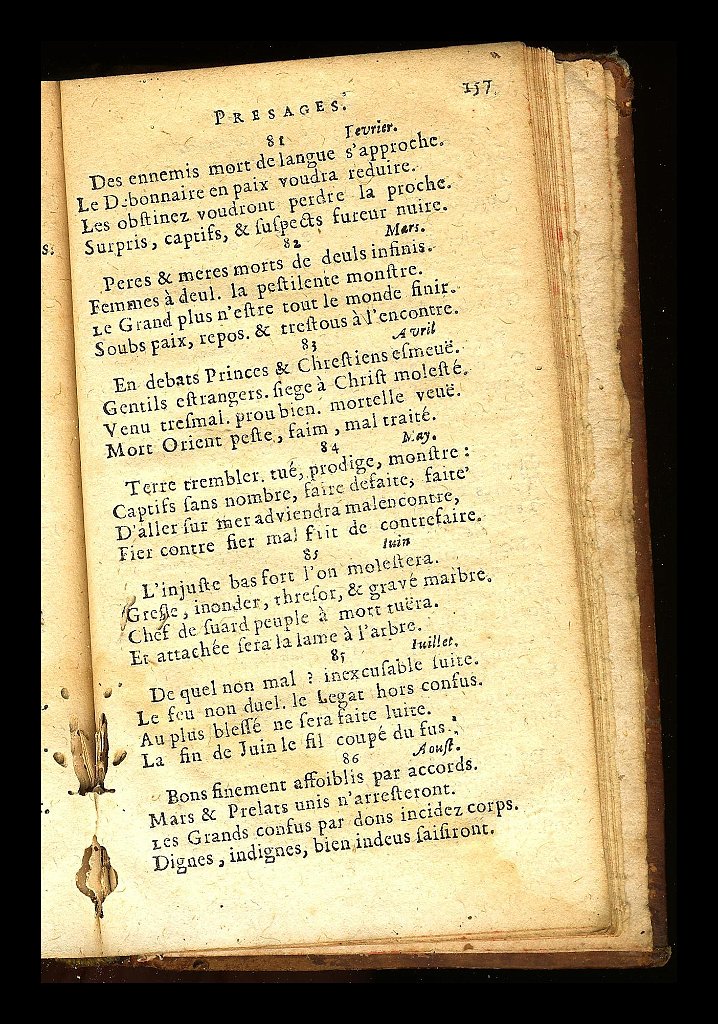 PRESAGES.
157
81
Fevrier.
Des ennemis mort de langue s'approche.
Le Debonnaire en paix voudra reduire.
Les obſtinez voudront perdre la proche.
Surpris, captifs, & ſuſpects fureur nuire.
82
Mars.
Peres & meres morts de deuls infinis.
Femmes à deul. la peſtilente monſtre.
Le Grand plus n'eſtre tout le monde finir.
Soubs paix, repos. & treſtous à l'encontre.
83
Avril
En debats Princes & Chreſtiens eſmeuë.
Gentils eſtrangers. ſiege à Chriſt moleſté.
Venu treſmal. prou bien. mortelle veuë.
Mort Orient peſte, faim, mal traité.
84
May.
Terre trembler. tué, prodige, monſtre:
Captifs ſans nombre, faire defaite, faite
D'aller ſur mer adviendra malencontre,
Fier contre fier mal fait de contrefaire.
85
Iuin
L'injuſte bas fort l'on moleſtera.
Greſle, inonder, threſor, & gravé marbre.
Chef de ſuard peuple à mort tuëra.
Et attachée ſera la lame à l'arbre.
85
Iuillet.
De quel non mal ? inexcuſable ſuite.
Le feu non duel. le Legat hors confus.
Au plus bleſſé ne ſera faite luite.
La fin de Juin le fil coupé du fus.
86
Aouſt.
Bons finement affoiblis par accords.
Mars & Prelats unis n'arreſteront.
Les Grands confus par dons incidez corps.
Dignes, indignes, bien indeus ſaiſiront.
s.